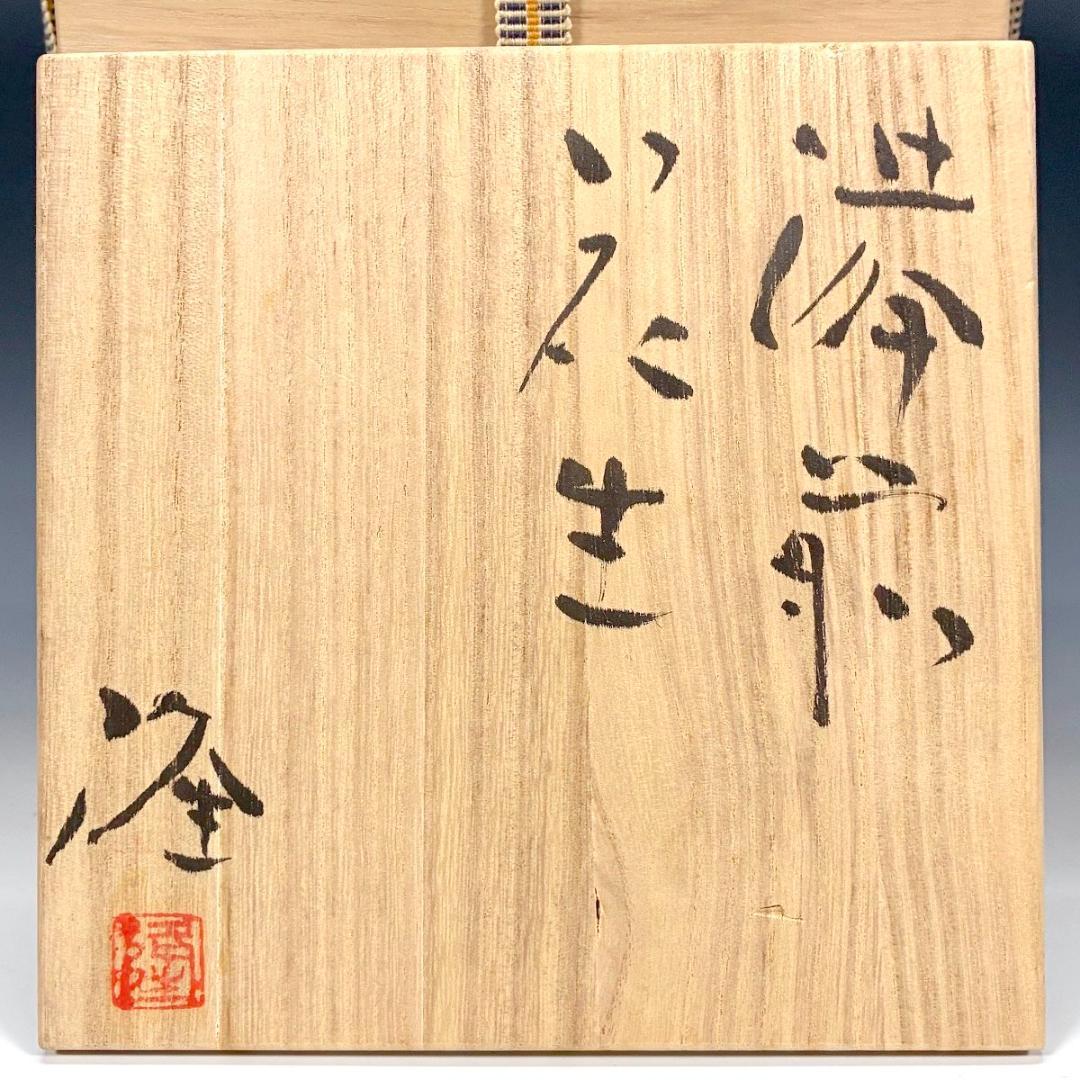 備前
花生